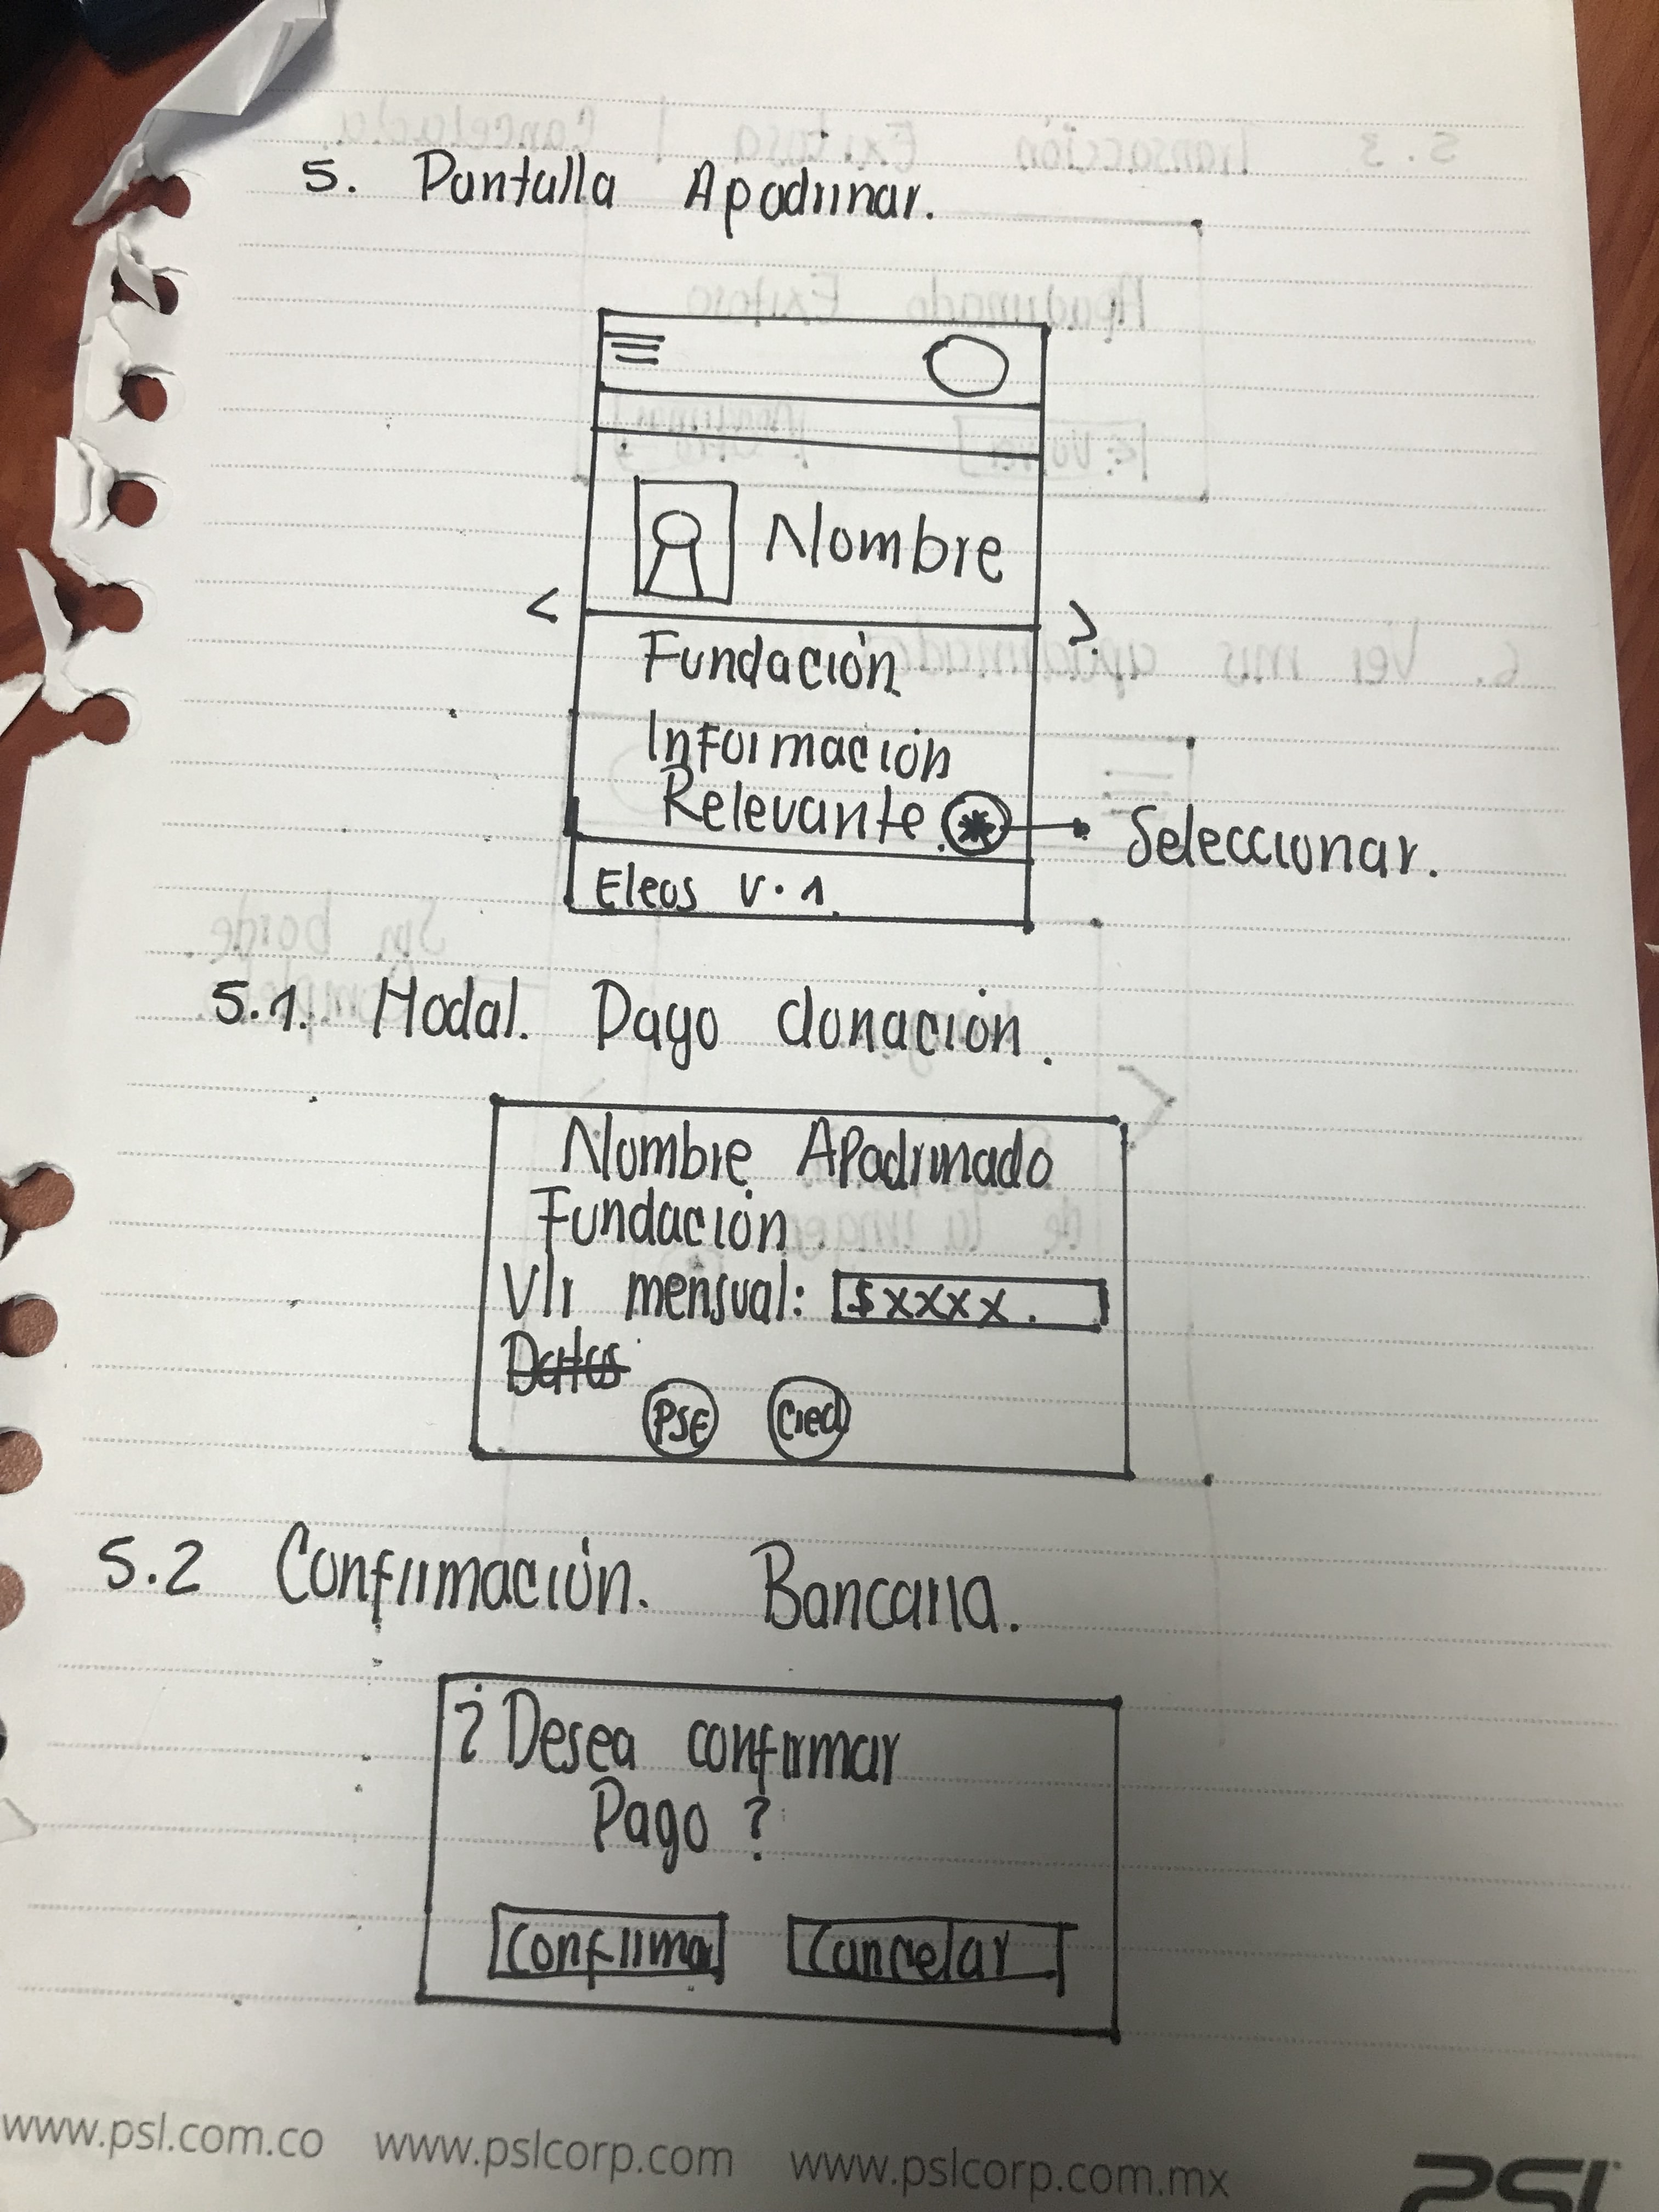 5. Pantalla Apadrinar.
Nombre
<
>
Fundación
Información
Relevante
* Seleccionar.
Eleos V.1.
5.1. Modal. Pago donación.
Nombre Apadrinado
Fundación
Vlr mensual: $xxxx.
Datos
PSE Cred
5.2 Confirmación. Bancaria.
¿Desea confirmar
Pago?
Confirmar Cancelar
www.psl.com.co www.pslcorp.com www.pslcorp.com.mx PSL